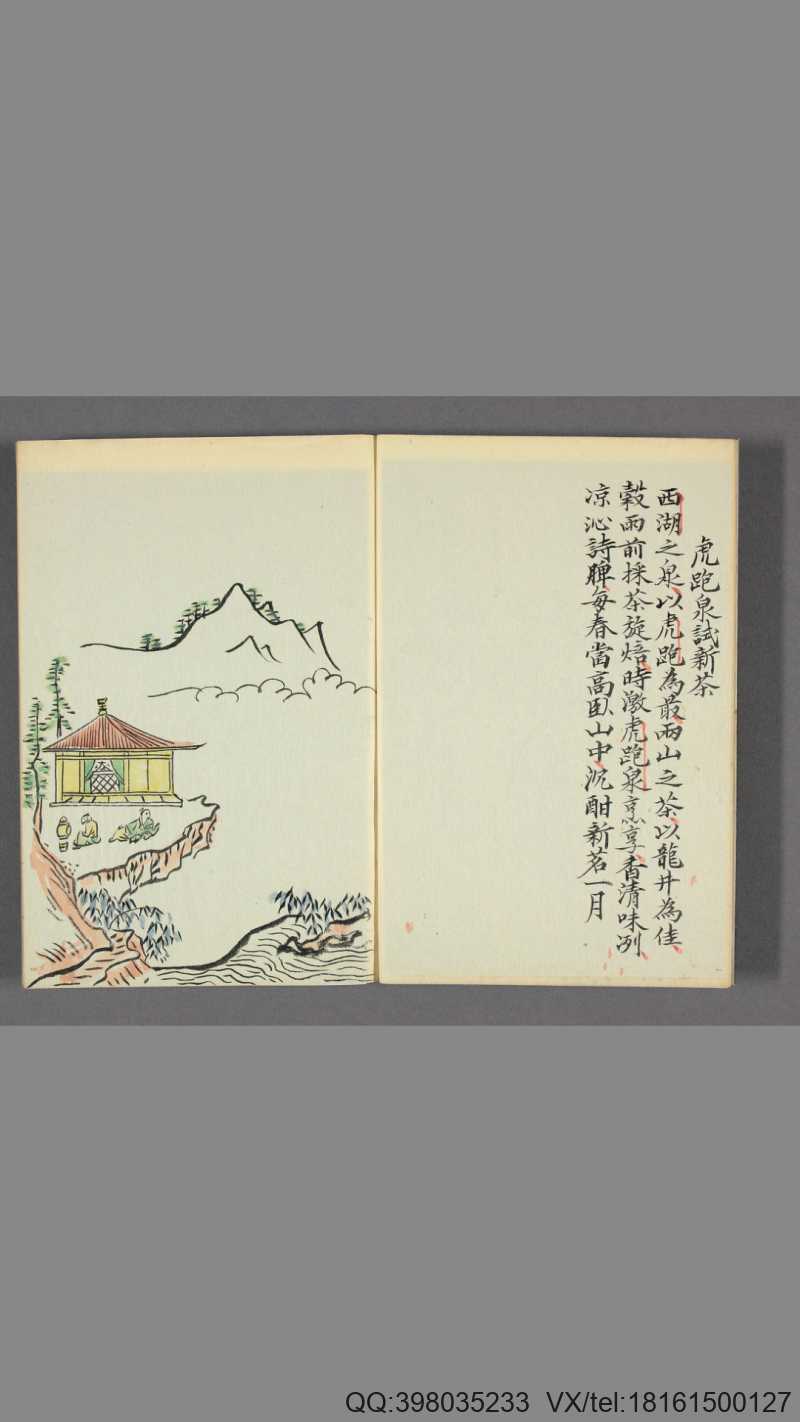 虎跑泉試新茶
西湖之泉以虎跑為最兩山之茶以龍井為佳
穀雨前採茶旋焙時激虎跑泉烹享香清味冽
凉沁詩脾每春當高臥山中沉酣新茗一月
QQ:398035233 VX/tel:18161500127